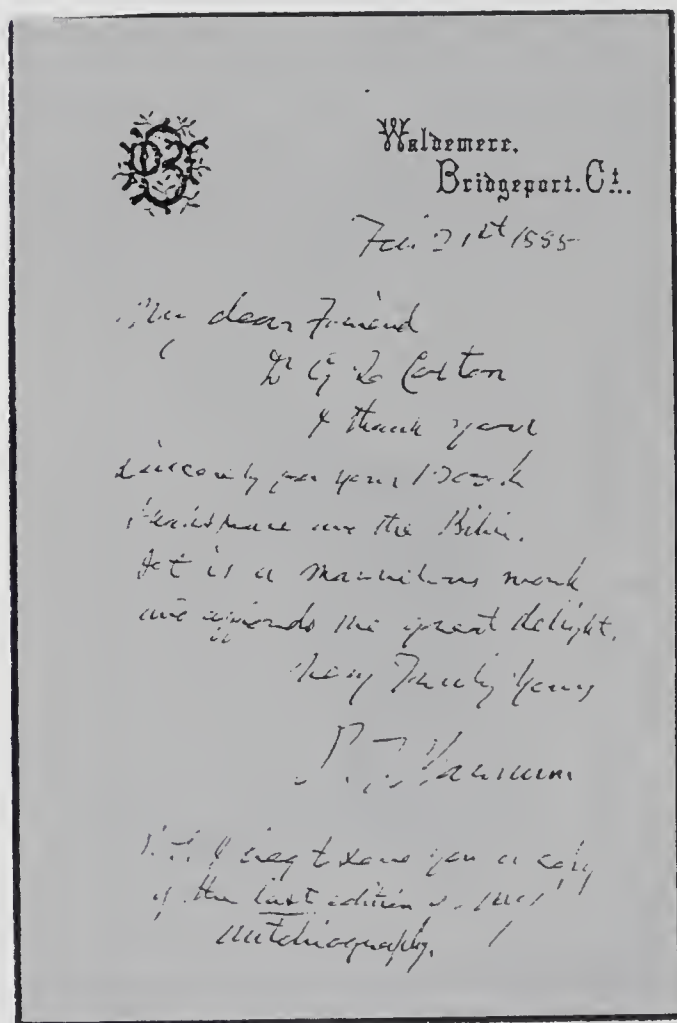 Waldemere.
Bridgeport. Ct.
Feb 21st 1885
My dear Friend
Dr G Q Colton
I thank you
sincerely for your Book
Shakspeare and the Bible.
It is a marvelous work
and affords me great delight.
Very Truly Yours
P. T. Barnum
P.S. I beg to send you a copy
of the last edition of my
autobiography.